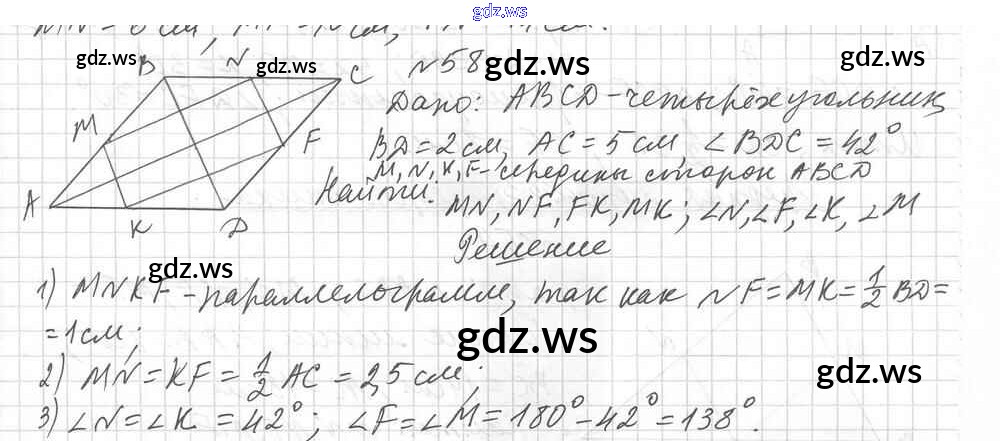 gdz.ws
MN = 6 см,
gdz.ws
B N gdz.ws C
№58 gdz.ws
gdz.ws
Дано: ABCD - четырёхугольник
M F
BD = 2 см, AC = 5 см, ∠BDC = 42°
M, N, K, F - середины сторон ABCD
Найти:
MN, NF, FK, MK; ∠N, ∠F, ∠K, ∠M
A K D
Решение
gdz.ws
gdz.ws
1) MNKF - параллелограмм, так как NF = MK = 1/2 BD =
= 1 см;
gdz.ws
2) MN = KF = 1/2 AC = 2,5 см;
gdz.ws
3) ∠N = ∠K = 42°; ∠F = ∠M = 180° - 42° = 138°.